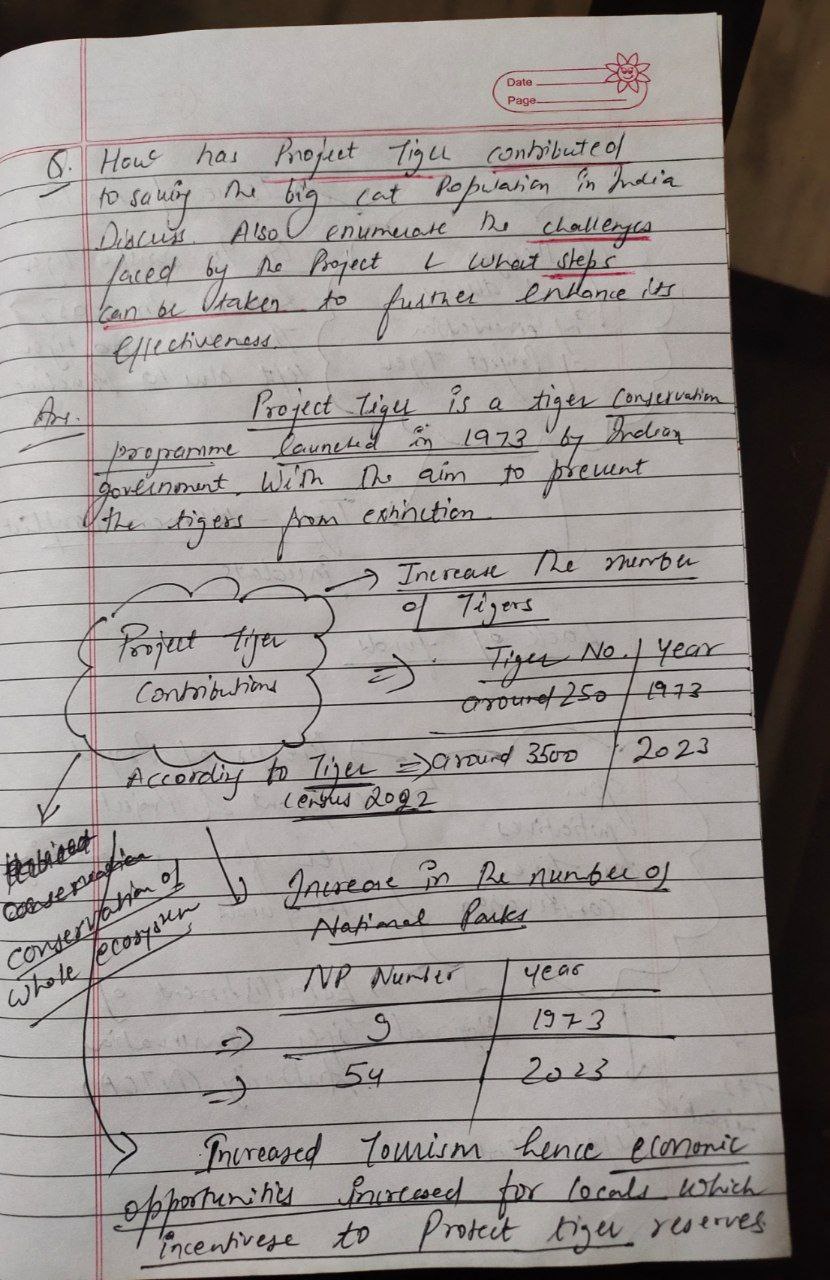 Date
Page
Q. How has Project Tiger contributed
to saving the big cat Population in India
Discuss. Also enumerate the challenges
faced by the Project & what steps
can be taken to further enhance its
effectiveness.
Ans. Project Tiger is a tiger conservation
programme launched in 1973 by Indian
government. With the aim to prevent
the tigers from extinction.
→ Increase the number
of Tigers
Project Tiger
Contributions
⇒ Tiger No. | year
around 250 | 1973
According to Tiger ⇒ around 3500 | 2023
Census 2022
conservation
conservation of
whole ecosystem
Increase in the number of
National Parks
NP Number | year
⇒ 9 | 1973
⇒ 54 | 2023
Increased Tourism hence economic
opportunities increased for locals which
incentivese to Protect tiger reserves